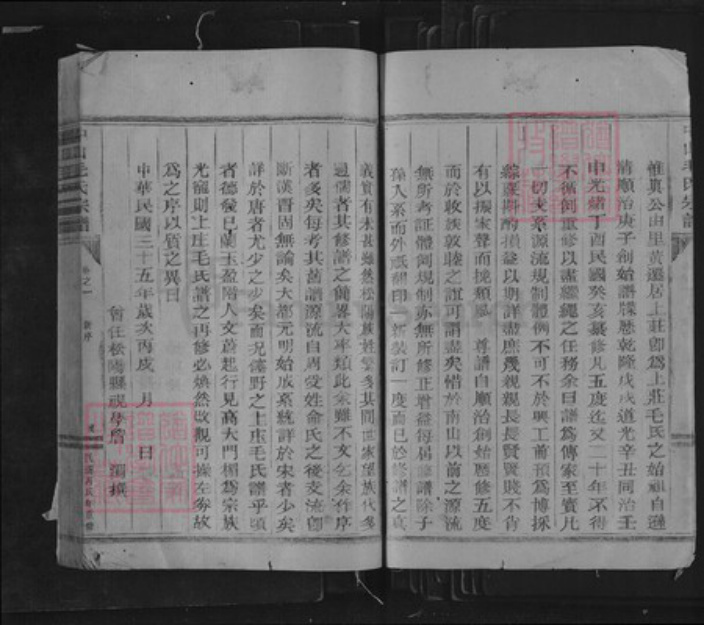 惟眞公由里黃遷居上莊卽爲上莊毛氏之始祖自遜
清順治庚子創始譜牒歷乾隆戊戌道光辛丑同治壬
申光緒丁酉民國癸亥纂修凡五度迄又二十年不得
不循例重修以盡繼繩之任務余曰譜爲傳家至寶凡
一切支系源流規制體例不可不於興工前預爲博採
綜覈斟酌損益以期詳盡庶幾親親長長賢賢賤不肖
有以振家聲而挽頹風 尊譜自順治創始歷修五度
而於收族敦睦之誼可謂盡矣惜於南山以前之源流
無所考証體例規制亦無所修正增益每屆修譜除子
孫入系而外祇翻印一新裝訂一度而已於修譜之眞
義實有未甚 雖然松陽族姓繁多其間世家望族代多
通儒者其修譜之簡畧大率類此余雖不文乞余作序
者多矣每考其舊譜源流自周受姓命氏之後支流卽
斷漢晉固無論矣大都元明始成系統詳於宋者少矣
詳於唐者尤少之少矣而況僻野之上庄毛氏譜乎頃
者德發已蘭玉盈階人文蔚起行見高大門楣爲宗族
光寵則上庄毛氏譜之再修必煥然改觀可操左券故
爲之序以質之異日
中華民國三十五年歲次丙戌 月 日
曾任松陽縣視學詹 撰
山毛氏宗譜
卷之一
新序